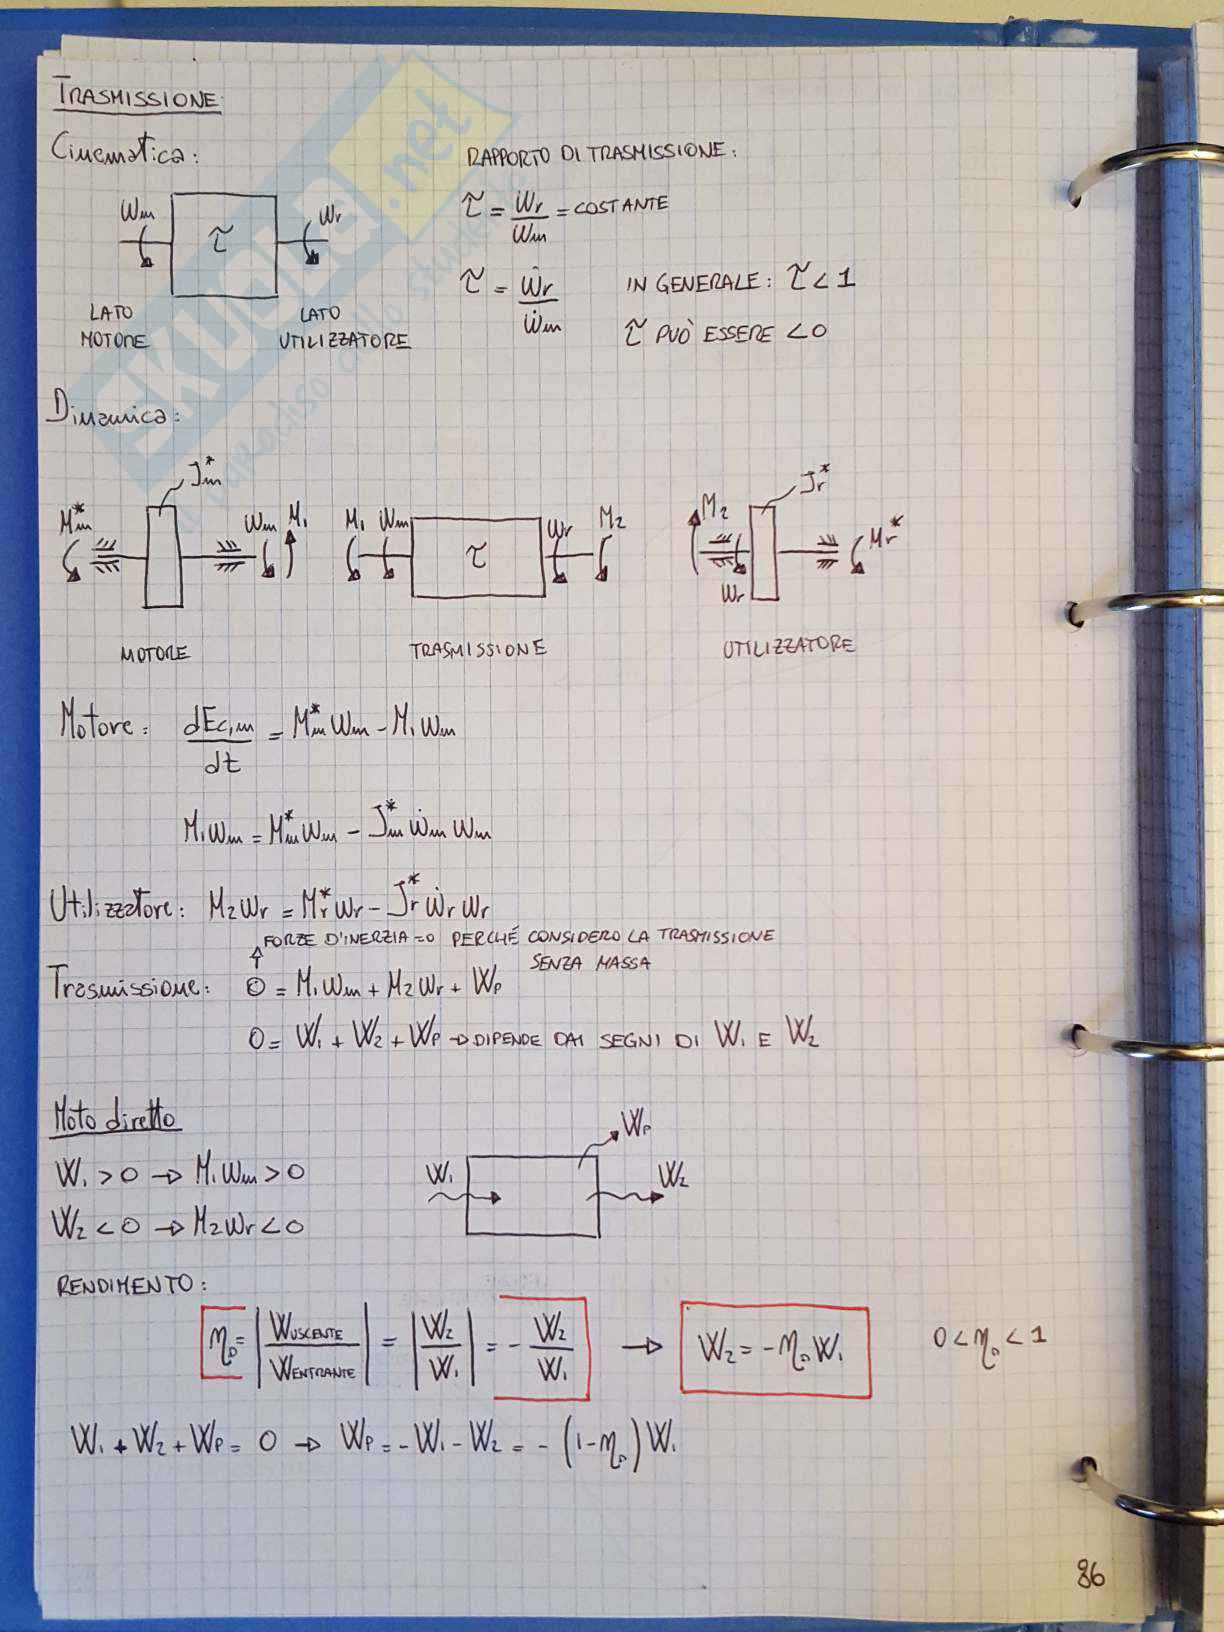 TRASMISSIONE
Cinematica:
RAPPORTO DI TRASMISSIONE:
ωm τ ωr
τ = ωr/ωm = COSTANTE
τ = ω̇r/ω̇m
IN GENERALE: τ < 1
LATO MOTORE
LATO UTILIZZATORE
τ PUÒ ESSERE < 0
Dinamica:
Mm* Jm* ωm M1
M1 ωm τ ωr M2
M2 ωr Jr* Mr*
MOTORE
TRASMISSIONE
UTILIZZATORE
Motore: dEc,m/dt = Mm* ωm - M1 ωm
M1 ωm = Mm* ωm - Jm* ω̇m ωm
Utilizzatore: M2 ωr = Mr* ωr - Jr* ω̇r ωr
FORZE D'INERZIA = 0 PERCHÉ CONSIDERO LA TRASMISSIONE
SENZA MASSA
Trasmissione: 0 = M1 ωm + M2 ωr + Wp
0 = W1 + W2 + Wp → DIPENDE DAI SEGNI DI W1 E W2
Moto diretto
W1 > 0 → M1 ωm > 0
W2 < 0 → M2 ωr < 0
W1 Wp W2
RENDIMENTO:
ηD = |WUSCENTE/WENTRANTE| = |W2/W1| = - W2/W1 → W2 = -ηD W1 0 < ηD < 1
W1 + W2 + Wp = 0 → Wp = -W1 - W2 = - (1 - ηD) W1
86
SKUOLA.net
il paradiso dello studente